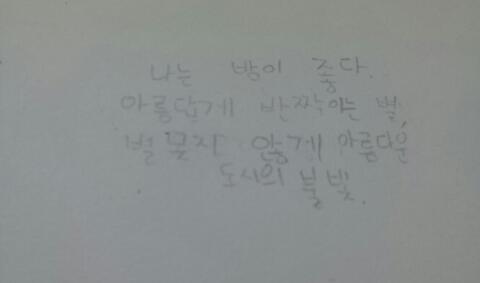 나는 밤이 좋다.
아름답게 반짝이는 별,
별 못지 않게 아름다운
도시의 불빛.